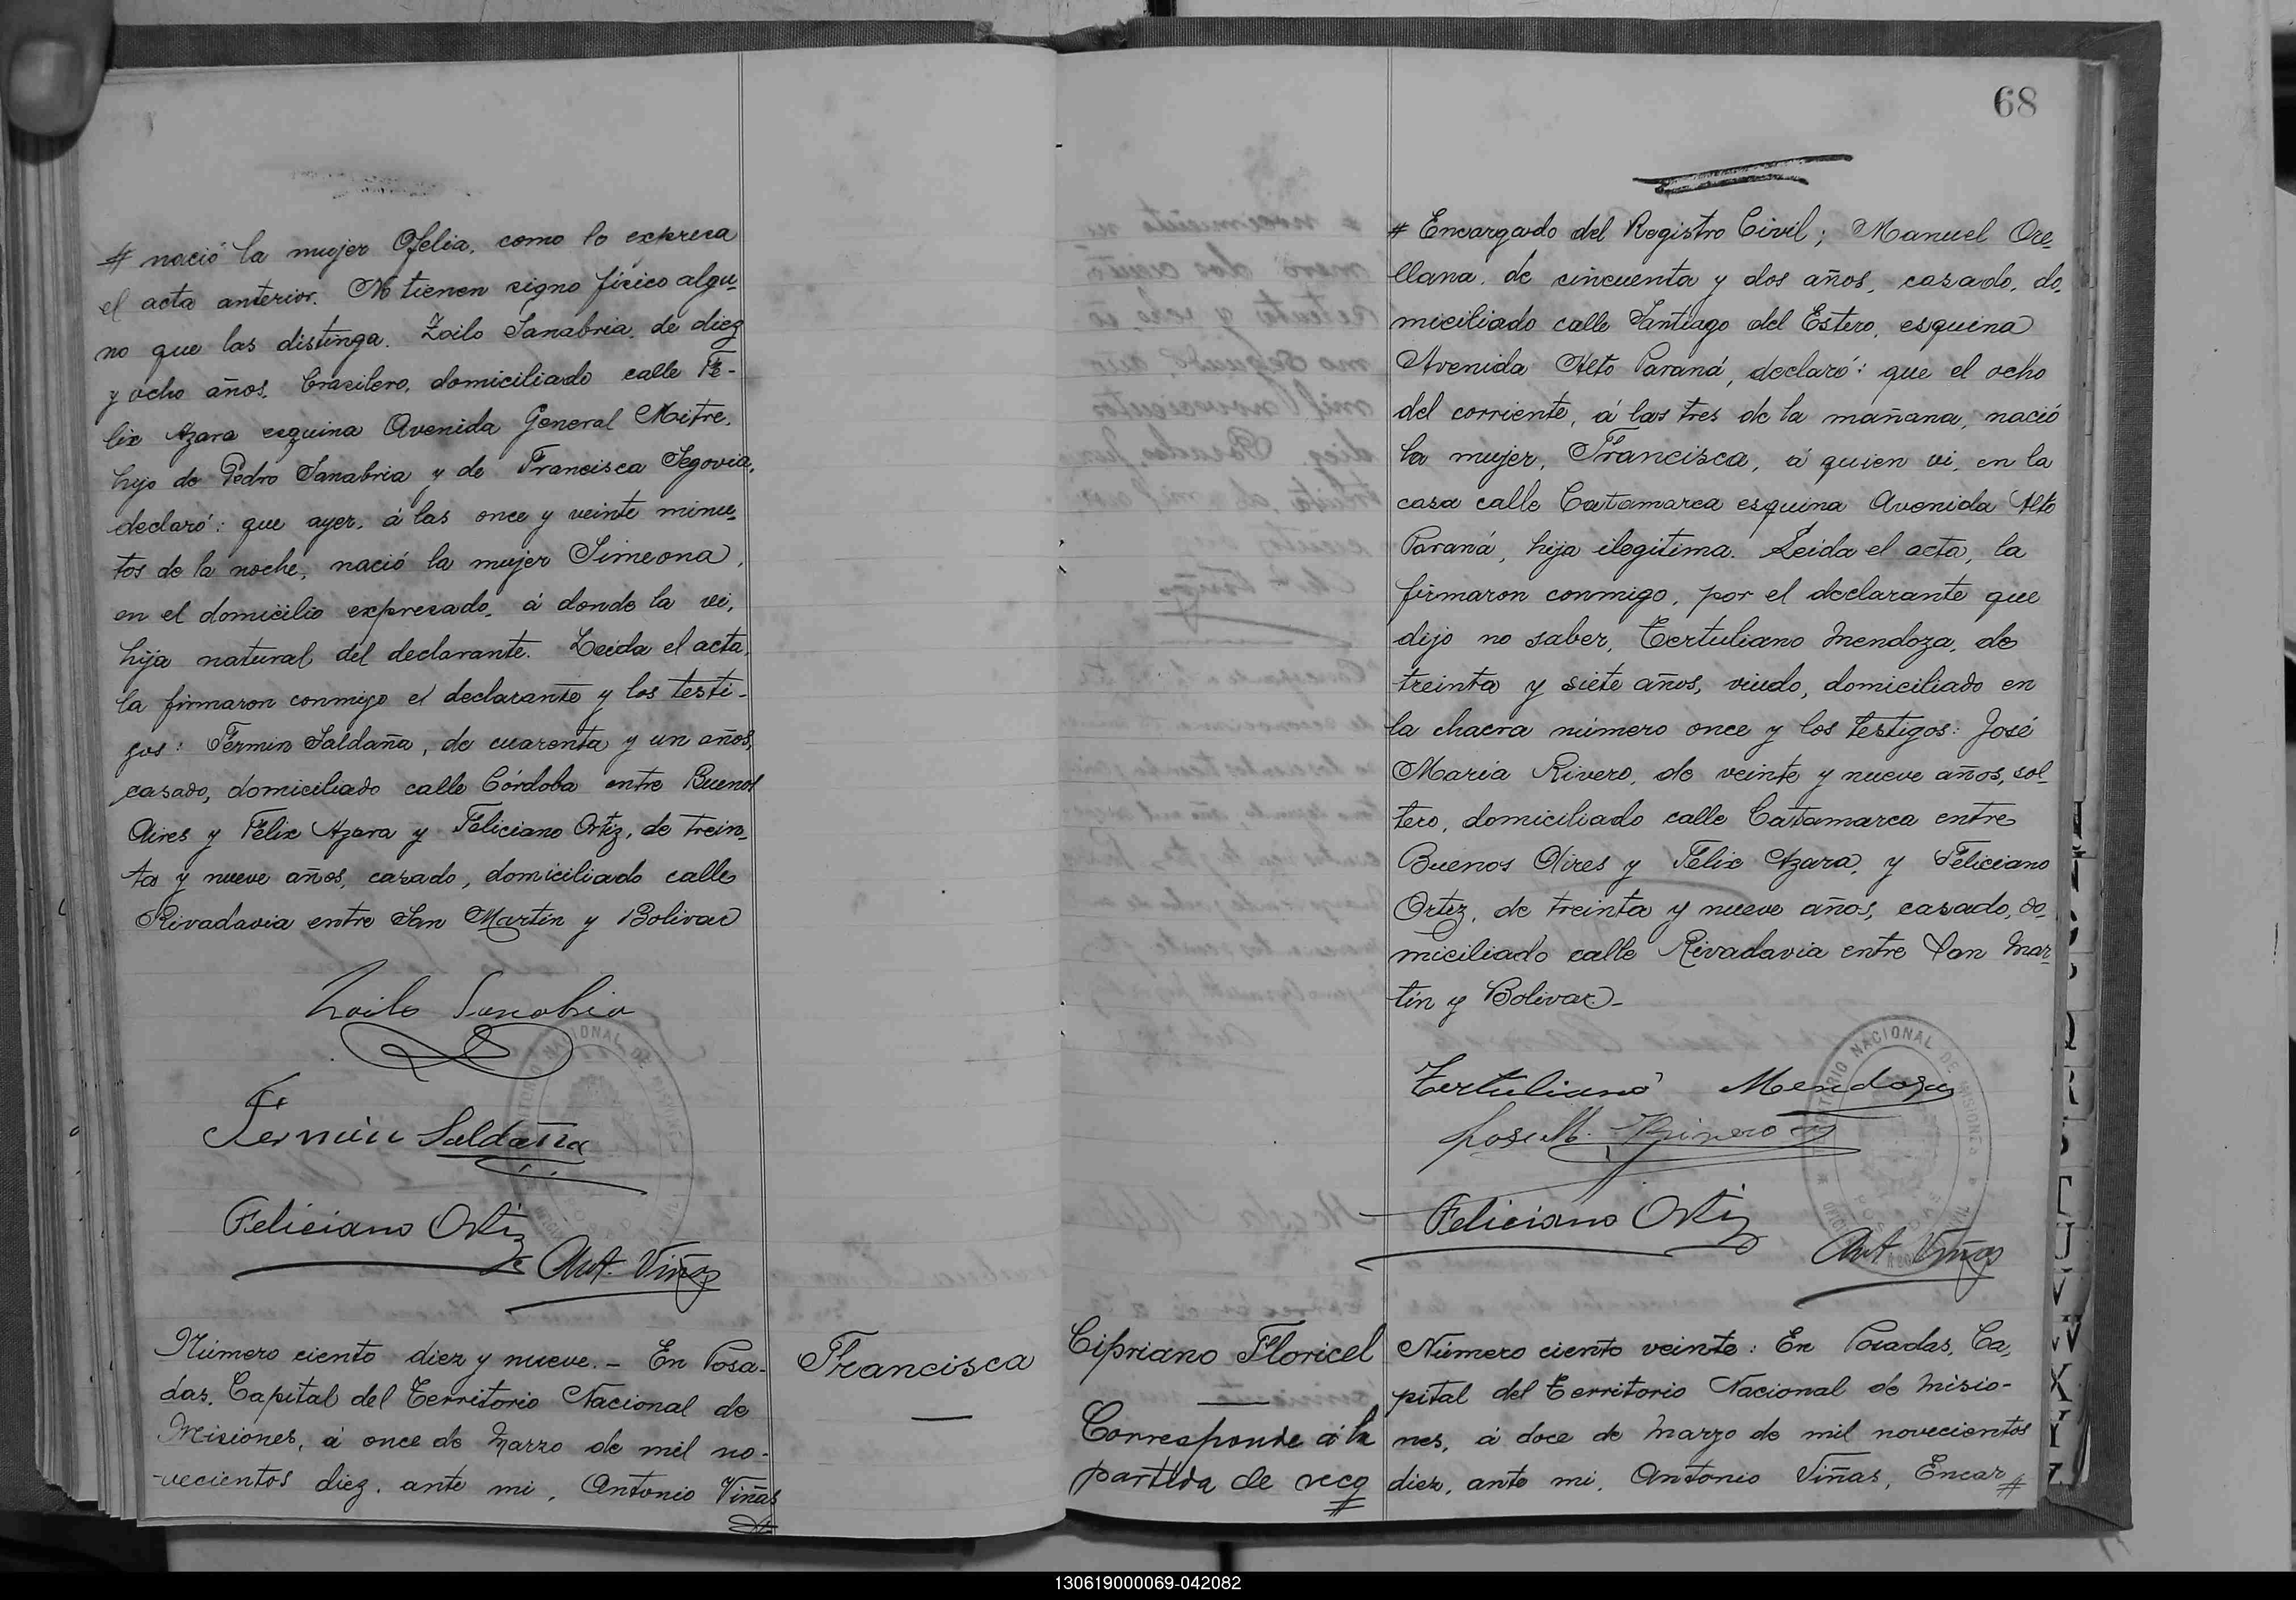 # nació la mujer Ofelia, como lo expresa
el acta anterior. No tienen signo físico algu-
no que las distinga. Zoilo Sanabria, de diez
y ocho años, brasilero, domiciliado calle Fe-
lix Azara esquina Avenida General Mitre,
hijo de Pedro Sanabria y de Francisca Segovia,
declaró: que ayer, á las once y veinte minu-
tos de la noche, nació la mujer Simeona,
en el domicilio expresado, á donde la vi,
hija natural del declarante. Leida el acta,
la firmaron conmigo el declarante y los testi-
gos: Fermin Saldaña, de cuarenta y un años,
casado, domiciliado calle Córdoba entre Buenos
Aires y Félix Azara y Feliciano Ortiz, de trein-
ta y nueve años, casado, domiciliado calle
Rivadavia entre San Martin y Bolivar
Zoilo Sanabria
Fermin Saldaña
Feliciano Ortiz
Ant. Viñas
Número ciento diez y nueve. - En Posa-
das, Capital del Territorio Nacional de
Misiones, á once de Marzo de mil no-
vecientos diez, ante mi, Antonio Viñas
#
Francisca
68
# Encargado del Registro Civil; Manuel Ore-
llana, de cincuenta y dos años, casado, do-
miciliado calle Santiago del Estero, esquina
Avenida Alto Paraná, declaró: que el ocho
del corriente, á las tres de la mañana, nació
la mujer, Francisca, á quien vi, en la
casa calle Catamarca esquina Avenida Alto
Paraná, hija ilegitima. Leida el acta, la
firmaron conmigo, por el declarante que
dijo no saber, Tertuliano Mendoza, de
treinta y siete años, viudo, domiciliado en
la chacra número once y los testigos: José
María Rivero, de veinte y nueve años, sol-
tero, domiciliado calle Catamarca entre
Buenos Aires y Felix Azara, y Feliciano
Ortiz, de treinta y nueve años, casado, do-
miciliado calle Rivadavia entre San Mar-
tin y Bolivar.-
Tertuliano Mendoza
José M. Rivero
Feliciano Ortiz
Ant. Viñas
Cipriano Floricel
Corresponde á la
partida de recq
#
Número ciento veinte: En Posadas, Ca-
pital del Territorio Nacional de Misio-
nes, á doce de Marzo de mil novecientos
diez, ante mi, Antonio Viñas, Encar #
130619000069-042082